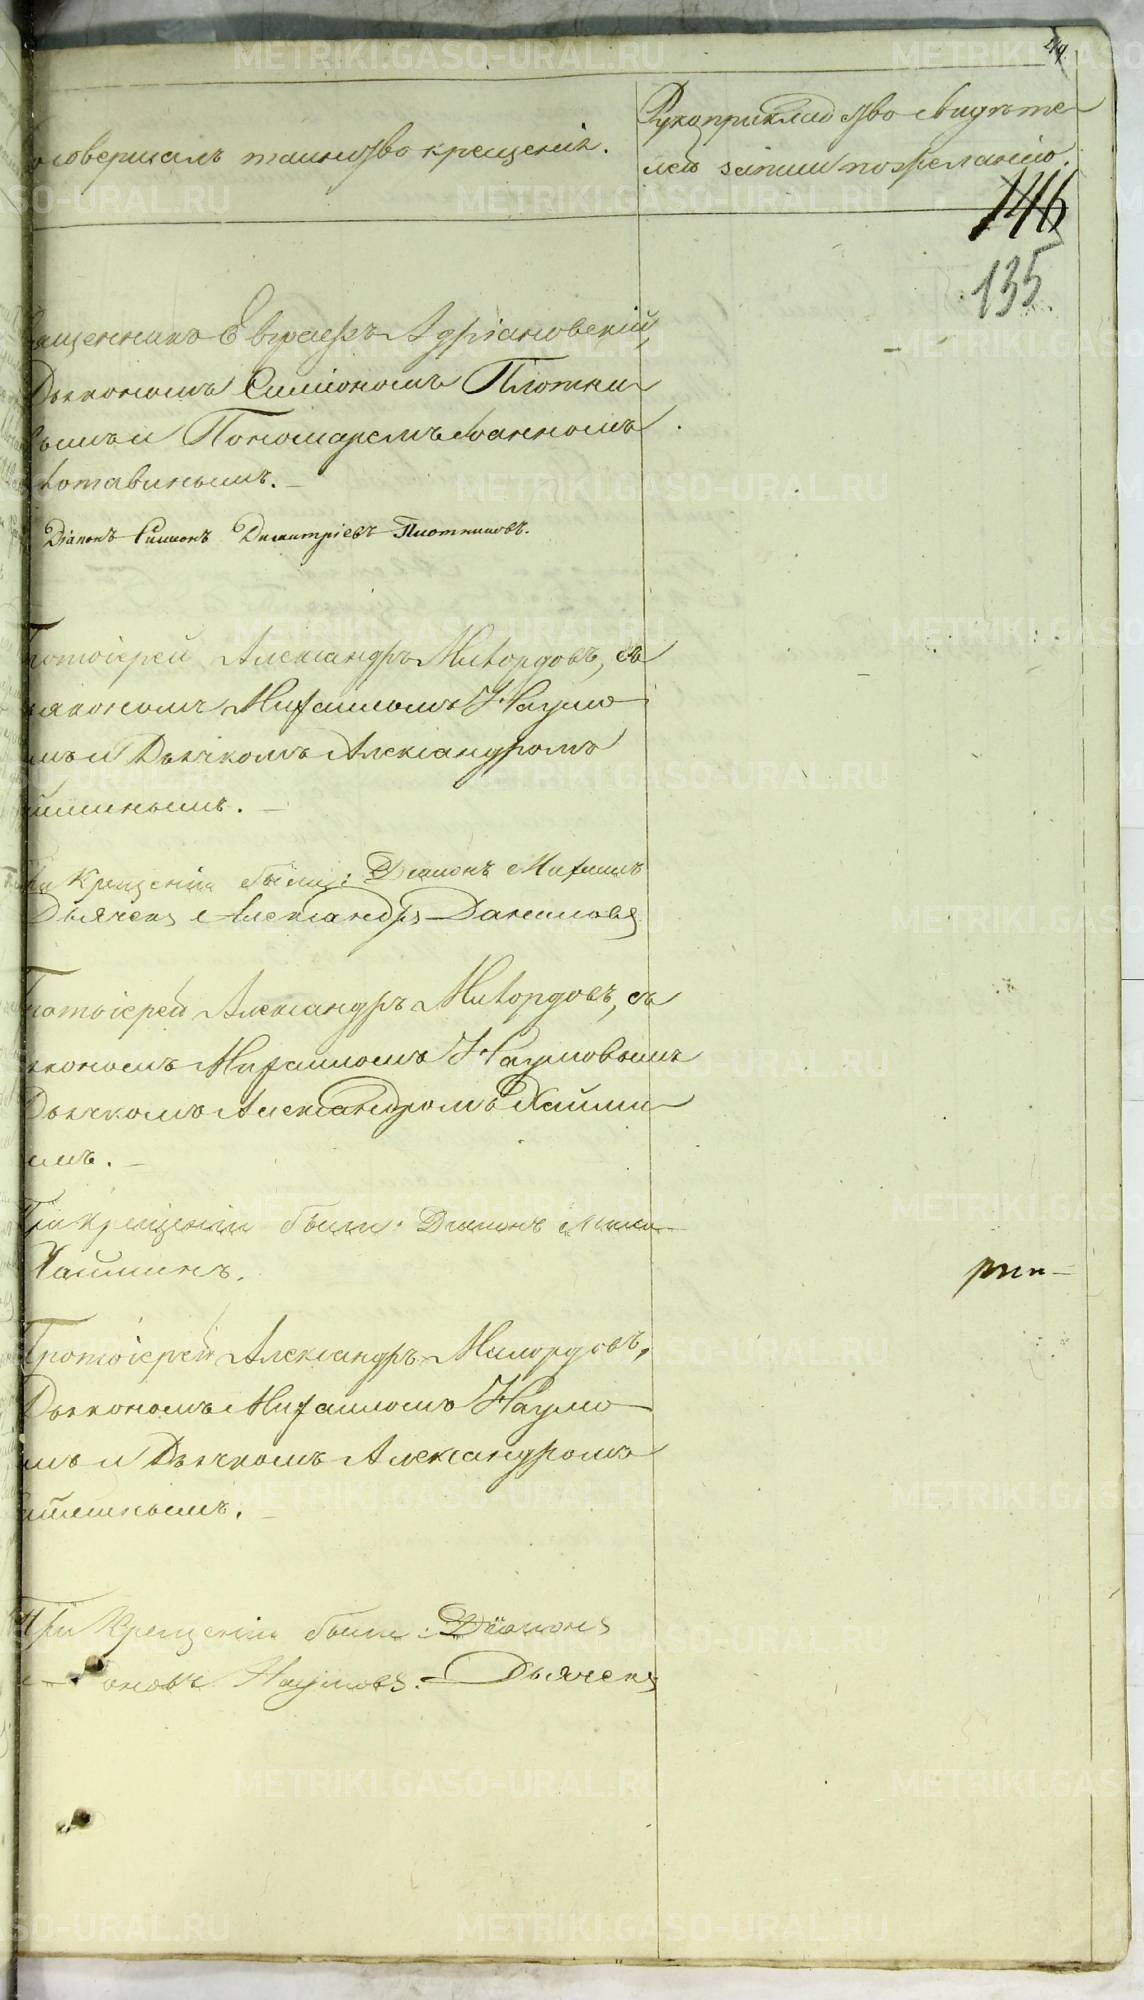 совершалъ таинство крещенія.
Рукоприкладство свидѣте
лей записи по желанію.
146
135
священникъ Евграфъ Адріановскій,
Дьякономъ Симеономъ Плотни
вымъ и Пономаремъ Іоанномъ
Діаконъ Симеонъ Димитріевъ Плотниковъ.
Протоіерей Александръ Милордовъ, съ
дьякономъ Михаиломъ Наумо
мъ и Дьячкомъ Александромъ
При крещеніи были: Діаконъ Михаилъ
Дьячекъ Александръ
Протоіерей Александръ Милордовъ, съ
дьякономъ Михаиломъ Наумовымъ
Дьячкомъ Александромъ Хайми
имъ.
При крещеніи были: Діаконъ
Хайминъ.
Протоіерей Александръ Милордовъ,
Дьякономъ Михаиломъ Наумо
мъ и Дьячкомъ Александромъ
При крещеніи были: Діаконъ
Наумовъ. Дьячекъ
METRIKI.GASO-URAL.RU